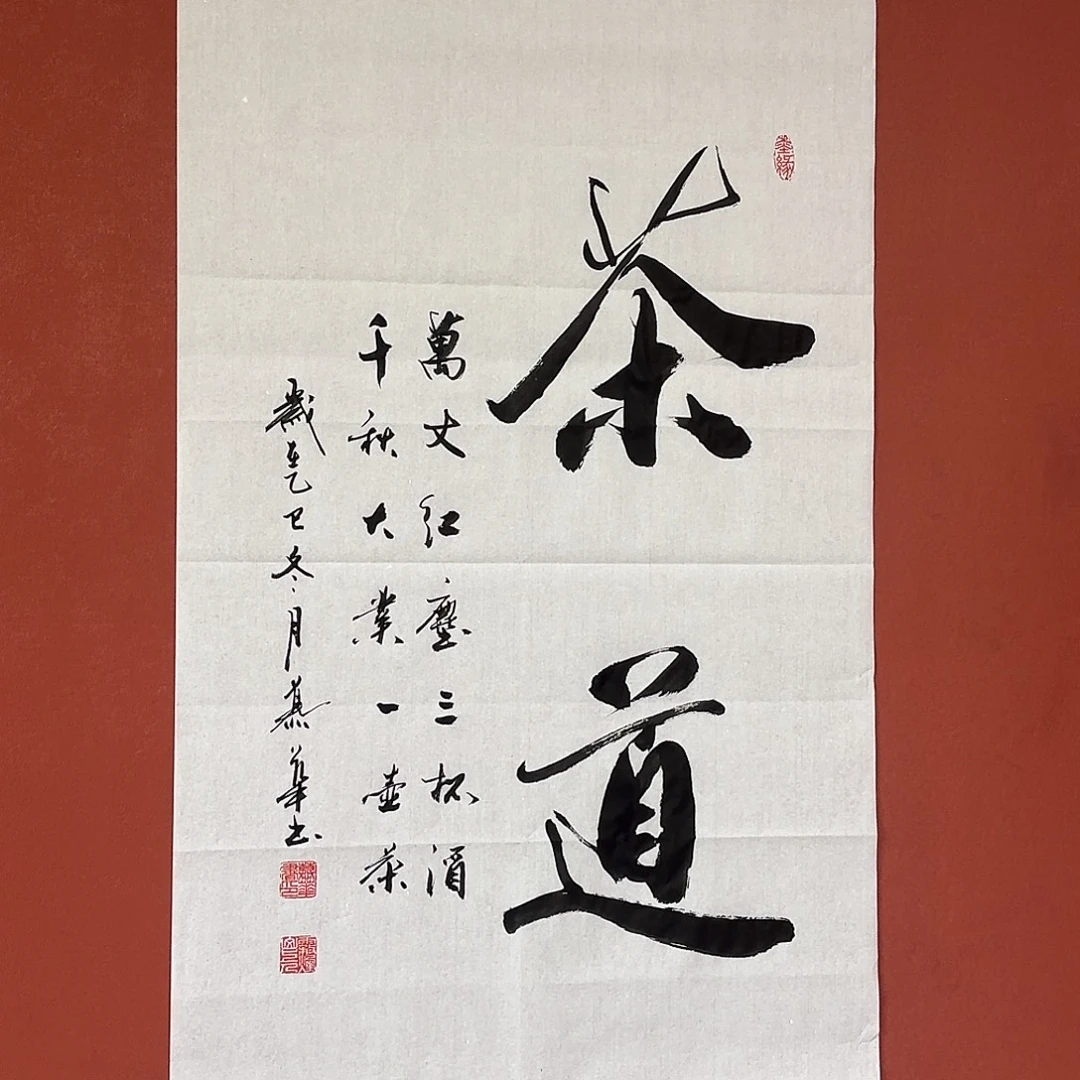 茶道
萬丈紅塵三杯酒
千秋大業一壺茶
歲在乙巳冬月燕華書